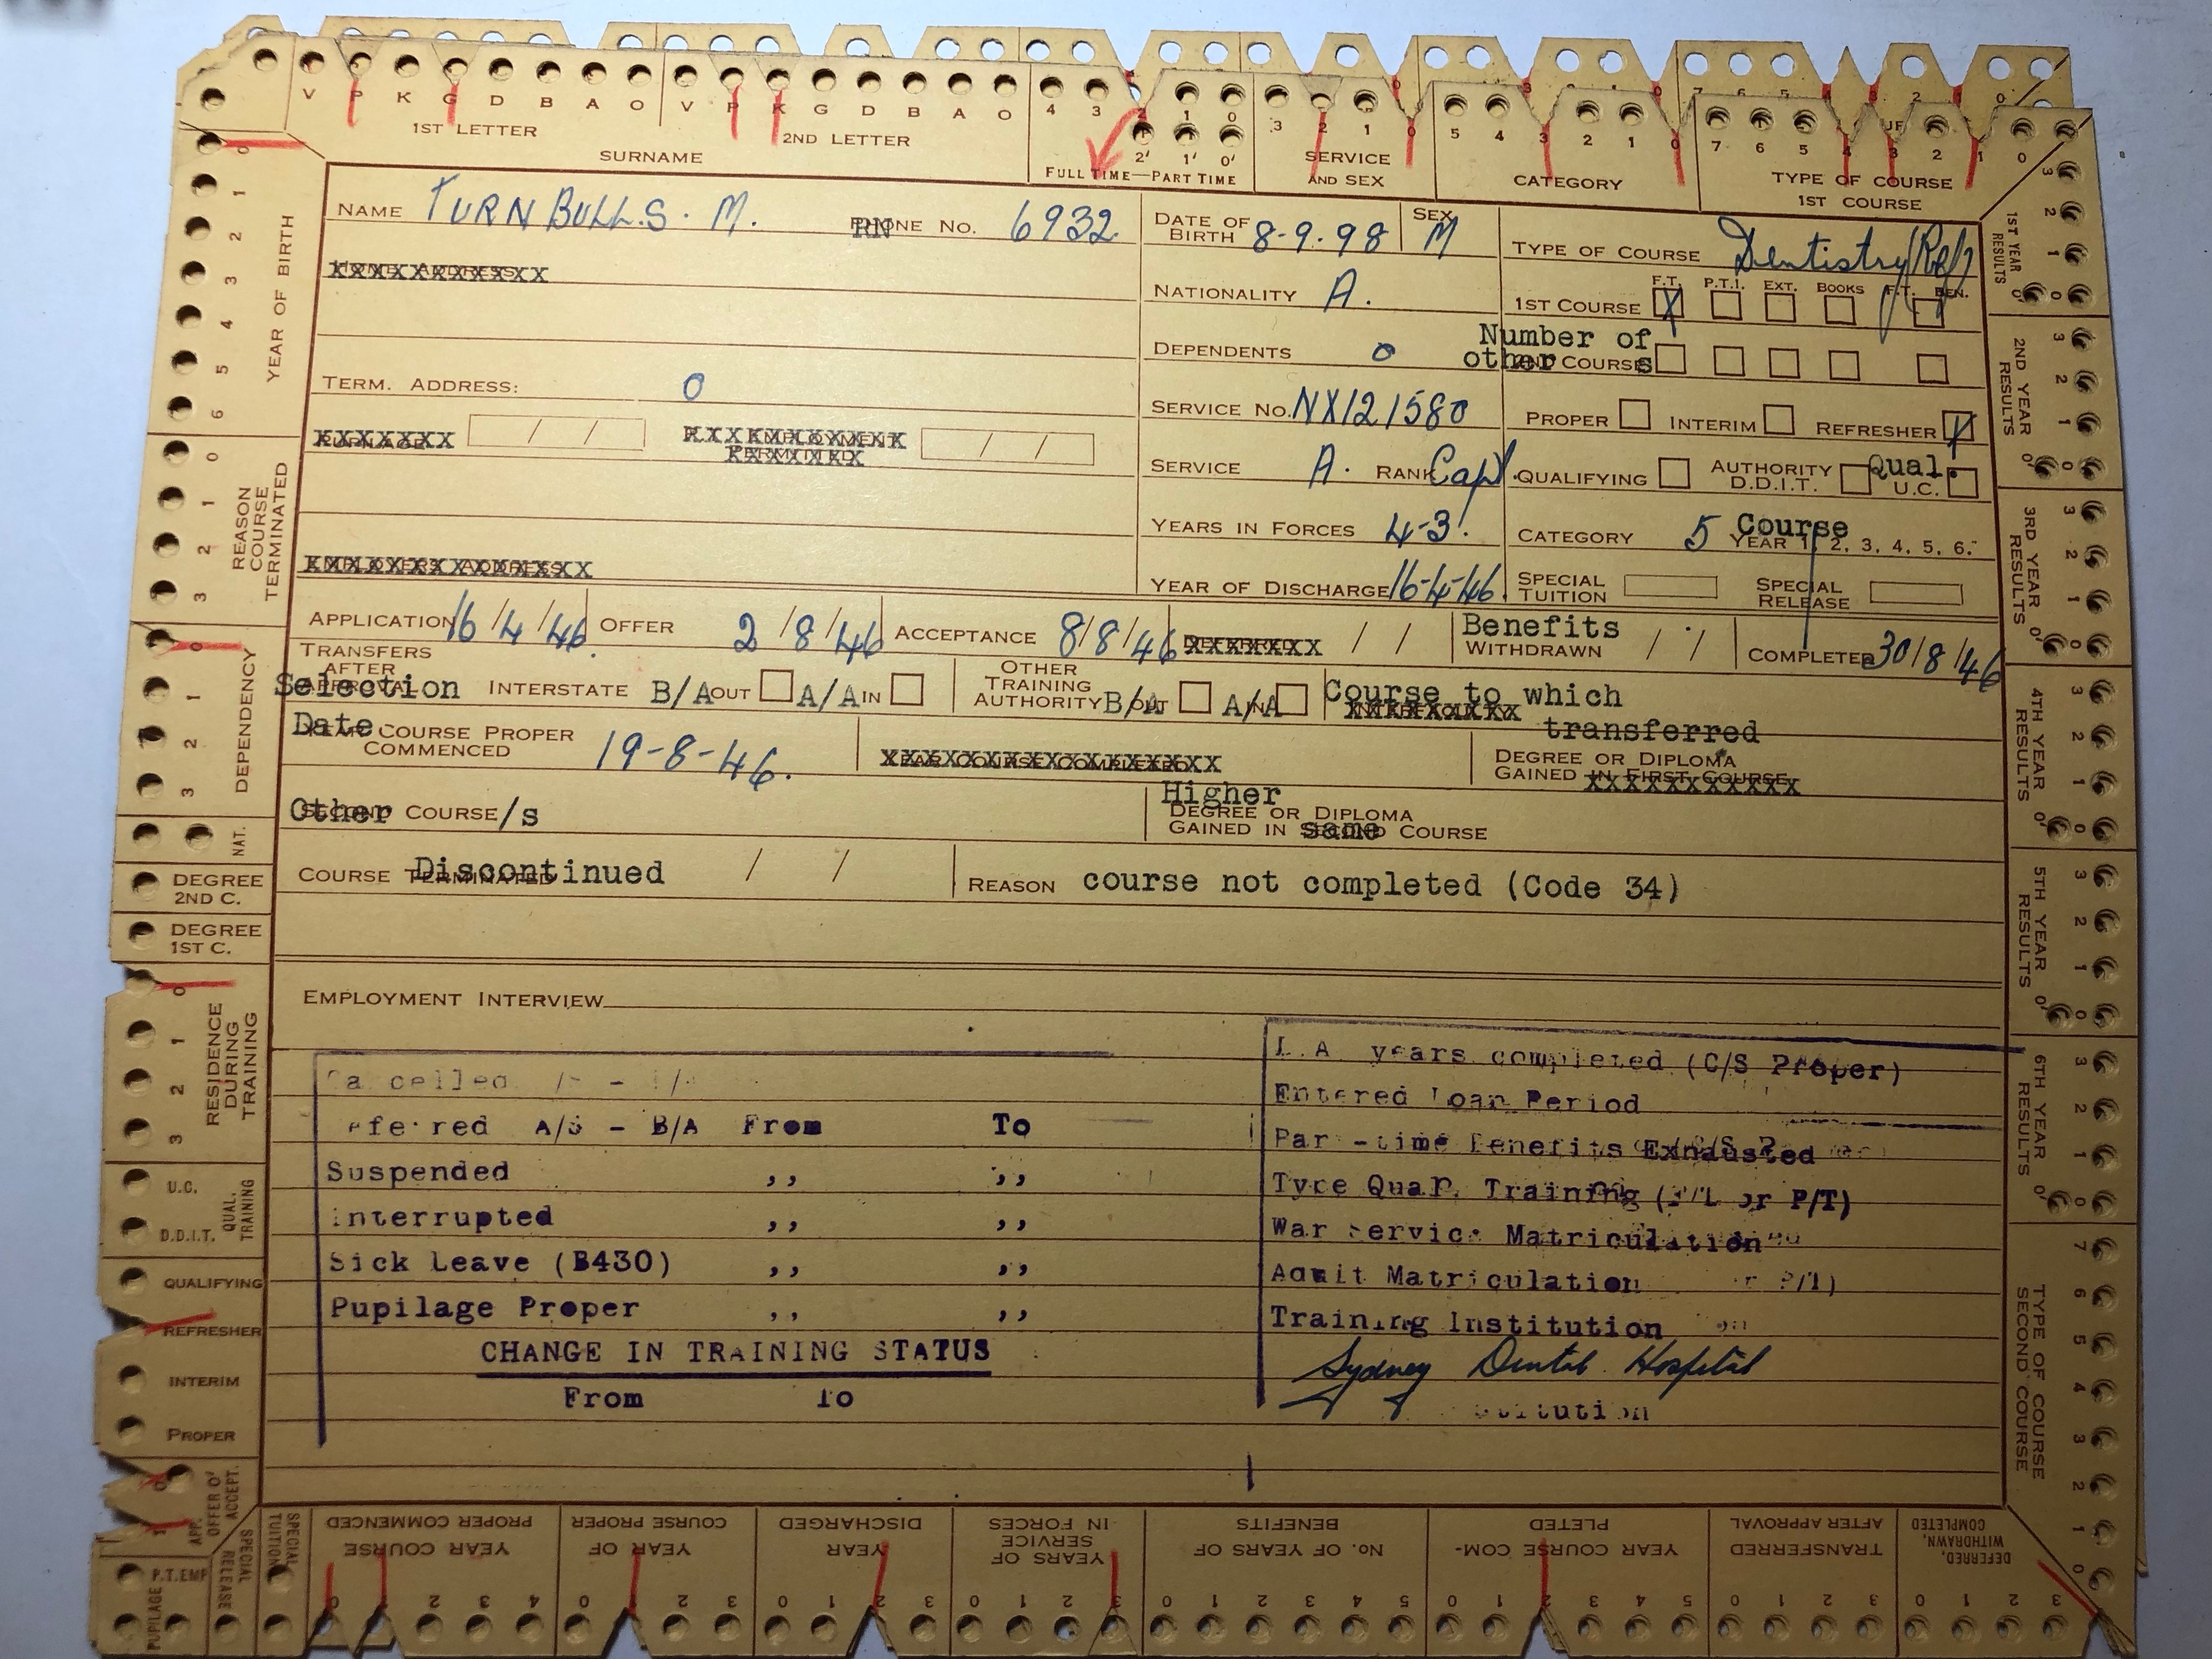 V P K G D B A O V P K G D B A O 4 3 2 1 0 3 2 1 0 5 4 3 2 1 0 7 6 5 4 3 2 1 0
1ST LETTER 2ND LETTER 2' 1' 0'
SURNAME FULL TIME—PART TIME SERVICE AND SEX CATEGORY TYPE OF COURSE 1ST COURSE
NAME TURNBULL.S. M. RN PHONE No. 6932 DATE OF BIRTH 8-9-98 SEX M TYPE OF COURSE Dentistry/Ref)
NATIONALITY A. 1ST COURSE F.T. X P.T.I. EXT. BOOKS F.T. BEN.
DEPENDENTS 0 Number of other COURSE s
TERM. ADDRESS: 0
SERVICE No. NX121580 PROPER INTERIM REFRESHER X
/ / / /
SERVICE A. RANK Capt. QUALIFYING AUTHORITY D.D.I.T. Qual. U.C.
YEARS IN FORCES 4-3. CATEGORY 5 Course YEAR 1, 2, 3, 4, 5, 6.
YEAR OF DISCHARGE 16-4-46. SPECIAL TUITION SPECIAL RELEASE
APPLICATION 16/4/46. OFFER 2/8/46 ACCEPTANCE 8/8/46 XXXXXXXX / / Benefits WITHDRAWN / / COMPLETED 30/8/46
TRANSFERS AFTER Selection INTERSTATE B/A OUT A/A IN OTHER TRAINING AUTHORITY B/A OUT A/A IN Course to which transferred
Date COURSE PROPER COMMENCED 19-8-46. DEGREE OR DIPLOMA GAINED IN FIRST COURSE
Other COURSE/s Higher DEGREE OR DIPLOMA GAINED IN same COURSE
COURSE Discontinued / / REASON course not completed (Code 34)
EMPLOYMENT INTERVIEW
Cancelled
eferred A/S - B/A From To
Suspended ,, ,,
Interrupted ,, ,,
Sick Leave (B430) ,, ,,
Pupilage Proper ,, ,,
CHANGE IN TRAINING STATUS
From To
years completed (C/S Proper)
Entered Loan Period
Part-time Benefits Exhausted
Type Qual. Training (F/T or P/T)
War Service Matriculation
Admit Matriculation
Training Institution
Sydney Dental Hospital
YEAR OF BIRTH 0 1 2 3 4 5 6
REASON COURSE TERMINATED 0 1 2 3
DEPENDENCY 0 1 2 3
NAT.
DEGREE 2ND C.
DEGREE 1ST C.
RESIDENCE DURING TRAINING 0 1 2 3
U.C.
D.D.I.T.
QUAL. TRAINING
QUALIFYING
REFRESHER
INTERIM
PROPER
OFFER O' ACCEPT.
APP.
P.T.EMP
PUPILAGE
SPECIAL RELEASE
SPECIAL TUITION
1ST YEAR RESULTS 3 2 1 0 0'
2ND YEAR RESULTS 3 2 1 0 0'
3RD YEAR RESULTS 3 2 1 0 0'
4TH YEAR RESULTS 3 2 1 0 0'
5TH YEAR RESULTS 3 2 1 0 0'
6TH YEAR RESULTS 3 2 1 0 0'
TYPE OF COURSE SECOND COURSE 7 6 5 4 3 2 1 0
YEAR COURSE PROPER COMMENCED 0 1 2 3 4
YEAR OF COURSE PROPER 0 1 2 3
YEAR DISCHARGED 0 1 2 3
YEARS OF SERVICE IN FORCES 0 1 2 3
No. OF YEARS OF BENEFITS 0 1 2 3 4 5
YEAR COURSE COMPLETED 0 1 2 3 4 5
TRANSFERRED AFTER APPROVAL 0 1 2 3
DEFERRED, WITHDRAWN, COMPLETED 0 1 2 3